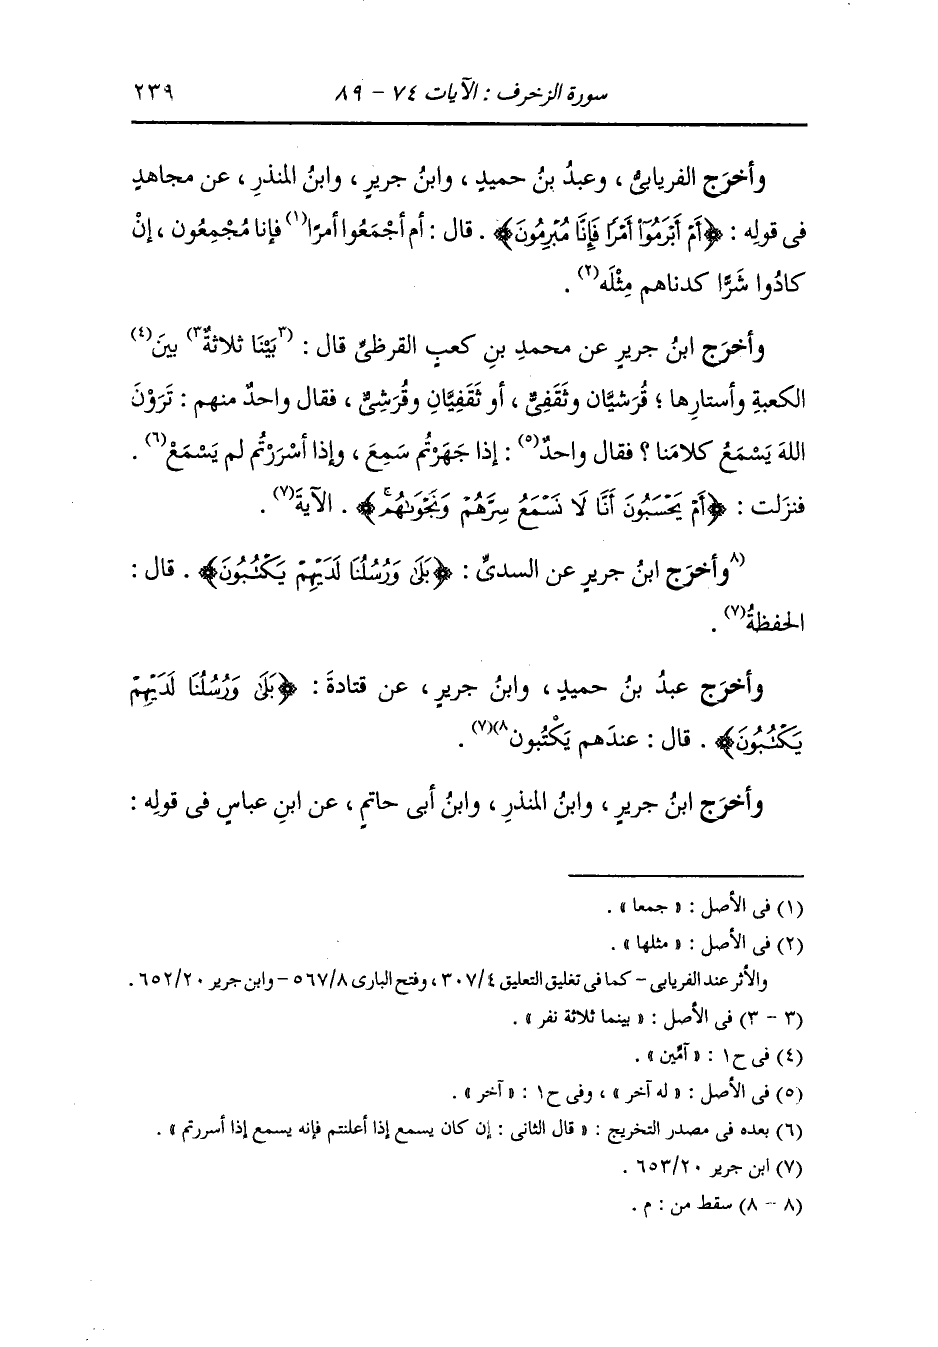 سورة الزخرف : الآيات ٧٤ - ٨٩ ٢٣٩
وأخرَج الفريابىُّ ، وعبدُ بنُ حميدٍ ، وابنُ جريرٍ ، وابنُ المنذرِ ، عن مجاهدٍ
فى قولِه : ﴿أَمْ أَبْرَمُوٓا۟ أَمْرًا فَإِنَّا مُبْرِمُونَ﴾ . قال : أم أجْمَعُوا أمرًا(١) فإنا مُجْمِعُون ، إنْ
كادُوا شَرًّا كدناهم مِثْلَه(٢) .
وأخرَج ابنُ جريرٍ عن محمدِ بنِ كعبٍ القرظىِّ قال : (٣بَيْنَا ثلاثةٌ٣) بينَ(٤)
الكعبةِ وأستارِها ؛ قُرَشيَّان وثَقَفِىٌّ ، أو ثَقَفِيَّانِ وقُرَشِىٌّ ، فقال واحدٌ منهم : تَرَوْنَ
اللهَ يَسْمَعُ كلامَنا ؟ فقال واحدٌ(٥) : إذا جَهَرْتُم سَمِعَ ، وإذا أسْرَرْتُم لم يَسْمَعْ(٦) .
فنزَلت : ﴿أَمْ يَحْسَبُونَ أَنَّا لَا نَسْمَعُ سِرَّهُمْ وَنَجْوَىٰهُمۚ﴾ . الآيةَ(٧) .
(٨وأخرَج ابنُ جريرٍ عن السدىِّ : ﴿بَلَىٰ وَرُسُلُنَا لَدَيْهِمْ يَكْتُبُونَ﴾ . قال :
الحفظةُ(٧) .
وأخرَج عبدُ بنُ حميدٍ ، وابنُ جريرٍ ، عن قتادةَ : ﴿بَلَىٰ وَرُسُلُنَا لَدَيْهِمْ
يَكْتُبُونَ﴾ . قال : عندَهم يَكْتُبون٨)(٧) .
وأخرَج ابنُ جريرٍ ، وابنُ المنذرِ ، وابنُ أبى حاتمٍ ، عن ابنِ عباسٍ فى قولِه :
(١) فى الأصل : « جمعا » .
(٢) فى الأصل : « مثلها » .
والأثر عند الفريابى - كما فى تغليق التعليق ٤/ ٣٠٧ ، وفتح البارى ٨/ ٥٦٧ - وابن جرير ٢٠/ ٦٥٢ .
(٣ - ٣) فى الأصل : « بينما ثلاثة نفر » .
(٤) فى ح ١ : « آمِّين » .
(٥) فى الأصل : « له آخر » ، وفى ح ١ : « آخر » .
(٦) بعده فى مصدر التخريج : « قال الثانى : إن كان يسمع إذا أعلنتم فإنه يسمع إذا أسررتم » .
(٧) ابن جرير ٢٠/ ٦٥٣ .
(٨ - ٨) سقط من : م .